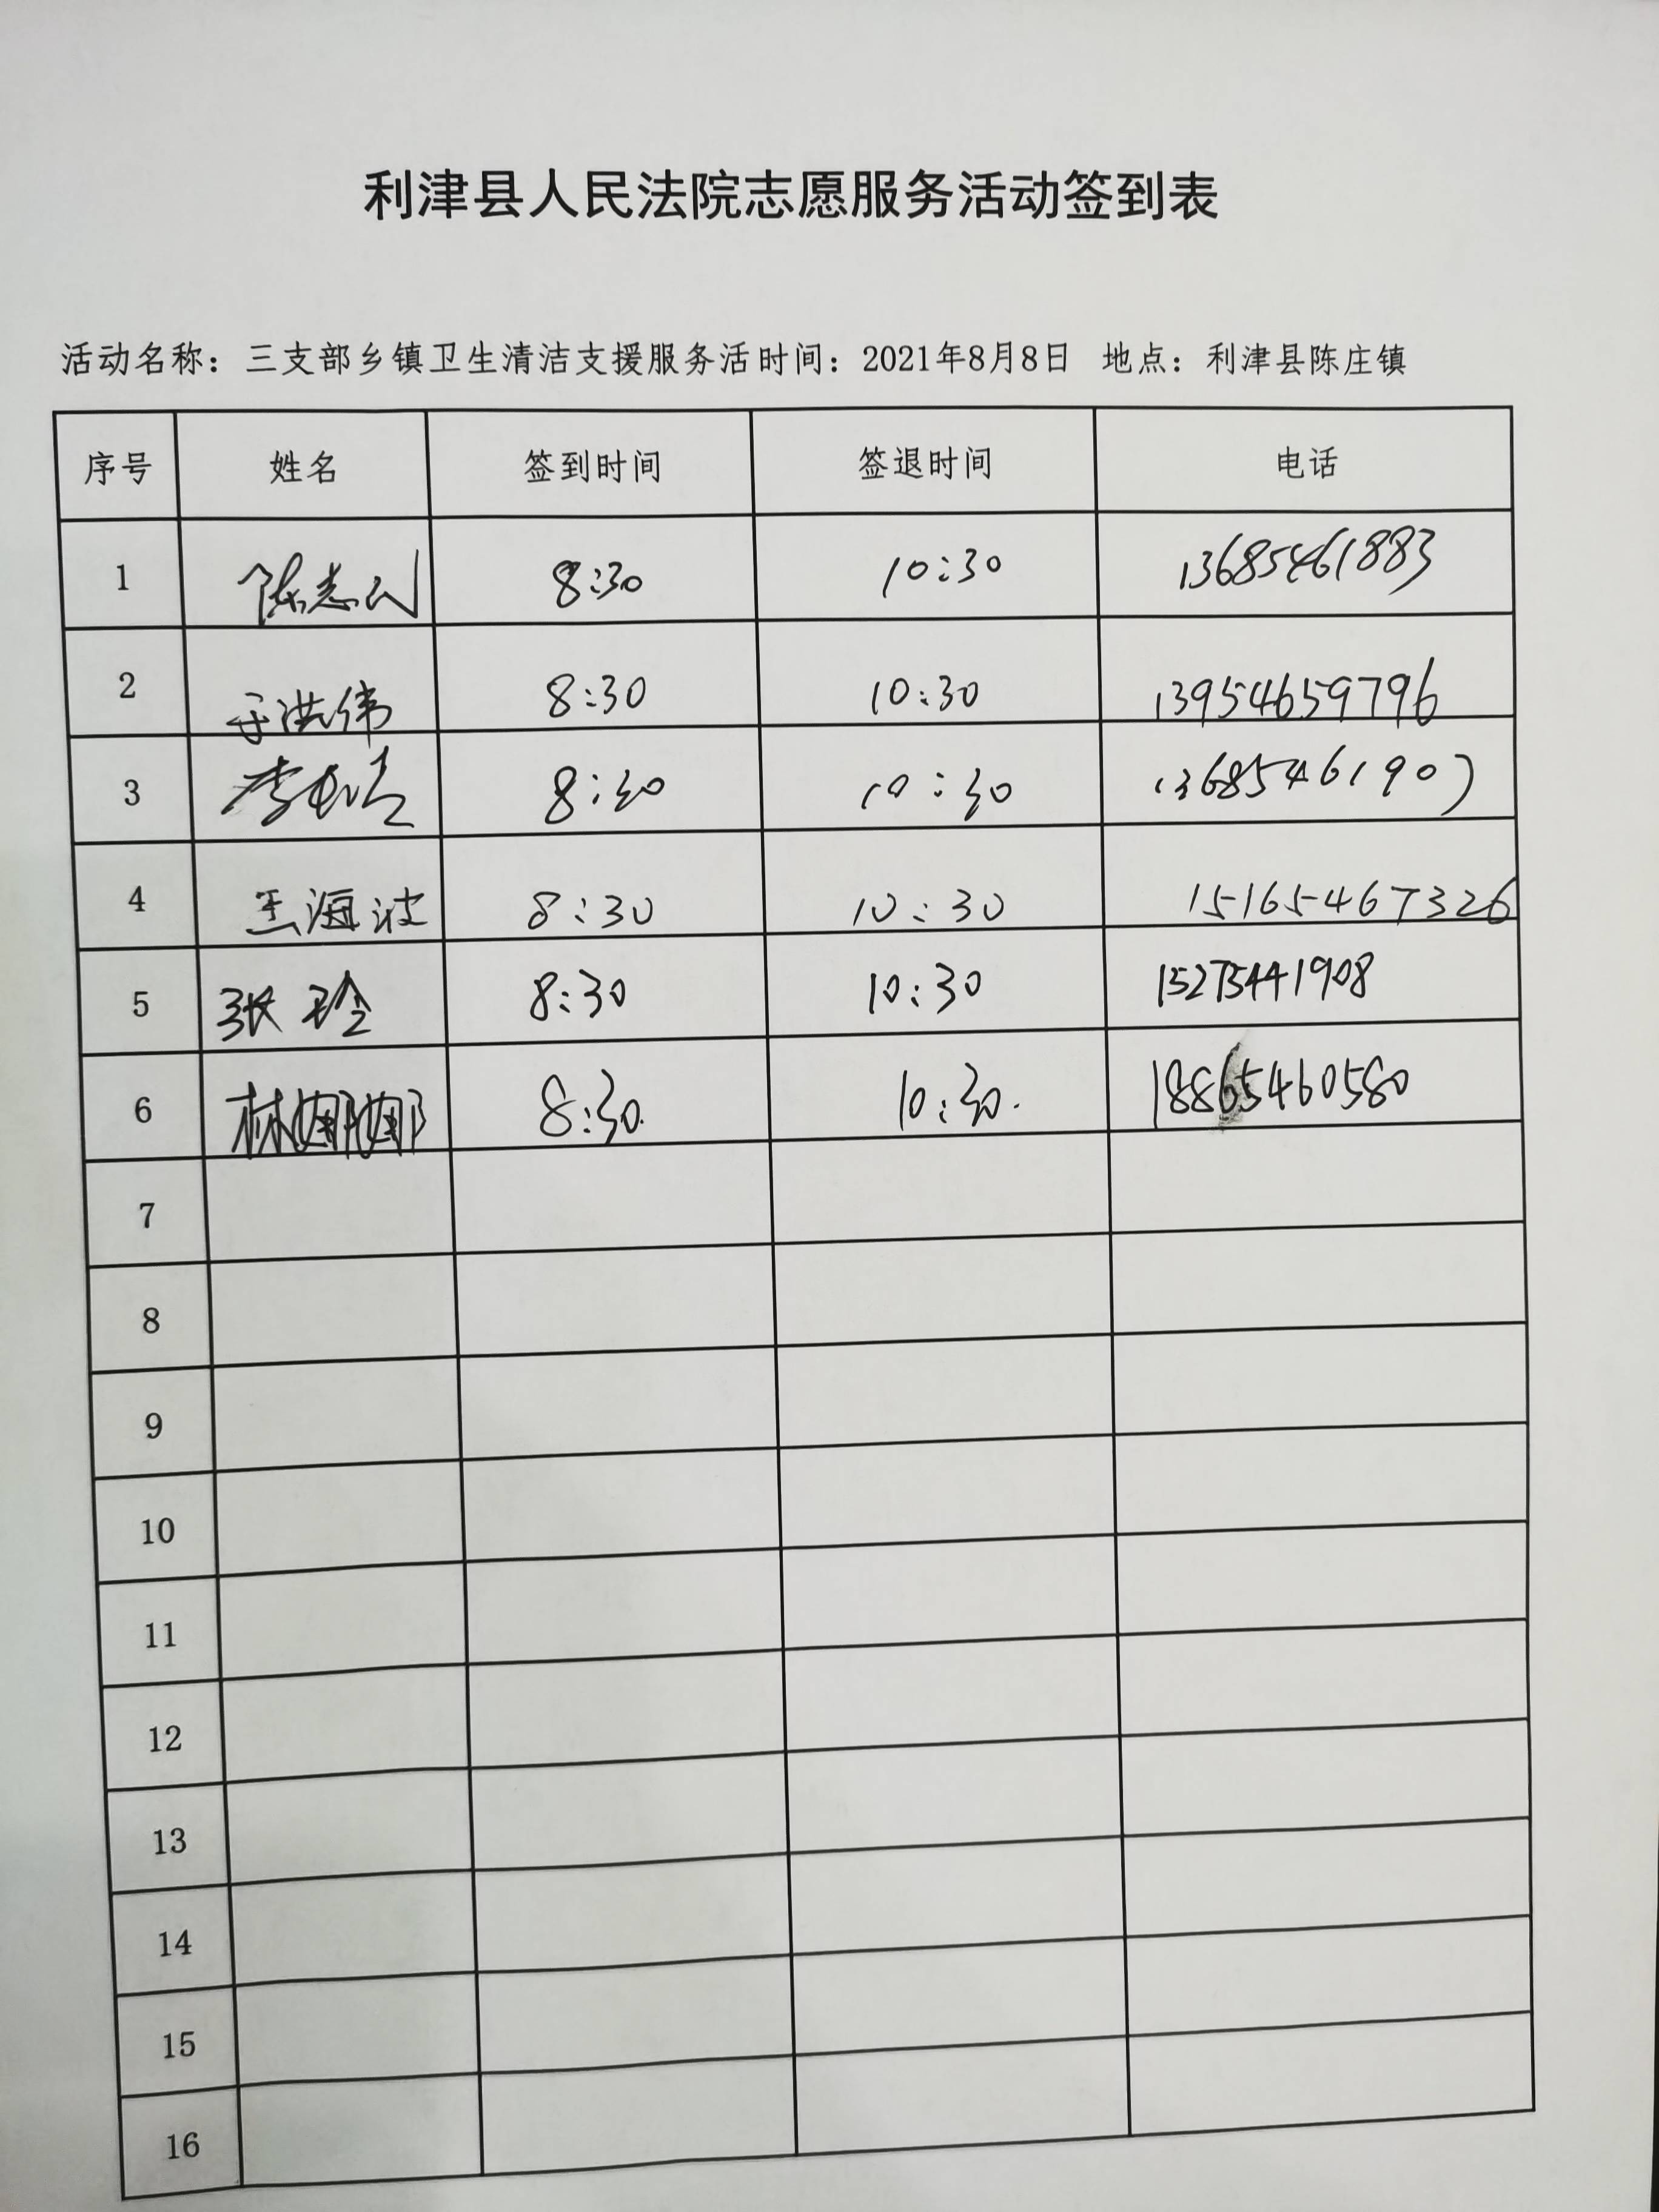 利津县人民法院志愿服务活动签到表
活动名称：三支部乡镇卫生清洁支援服务活时间：2021年8月8日 地点：利津县陈庄镇
序号 姓名 签到时间 签退时间 电话
1 陈志 8:30 10:30 13685461883
2 于洪伟 8:30 10:30 13954659796
3 李 8:30 10:30 13685461907
4 王海波 8:30 10:30 15165467326
5 张玲 8:30 10:30 15275441908
6 林娜娜 8:30 10:30. 18865460580
7
8
9
10
11
12
13
14
15
16